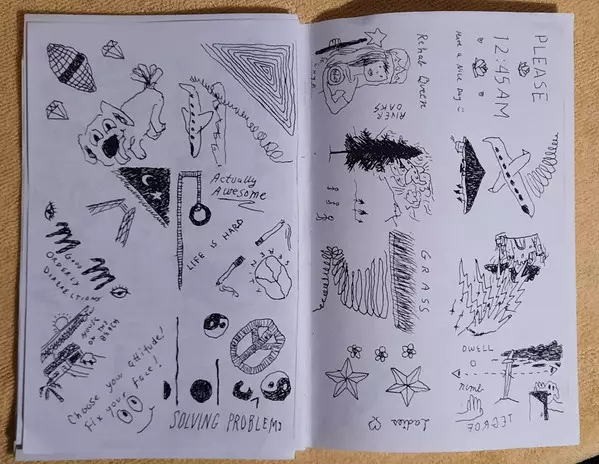 Actually
Awesome
LIFE IS HARD
GOOD
ORDERLY
DIRECTIONS
HOUSE
ON THE
BEACH
Choose your attitude!
Fix your face!
SOLVING PROBLEMS
PLEASE
12:45AM
Have a Nice Day
Rehab Queen
RIVER
OAKS
GRASS
Ladies